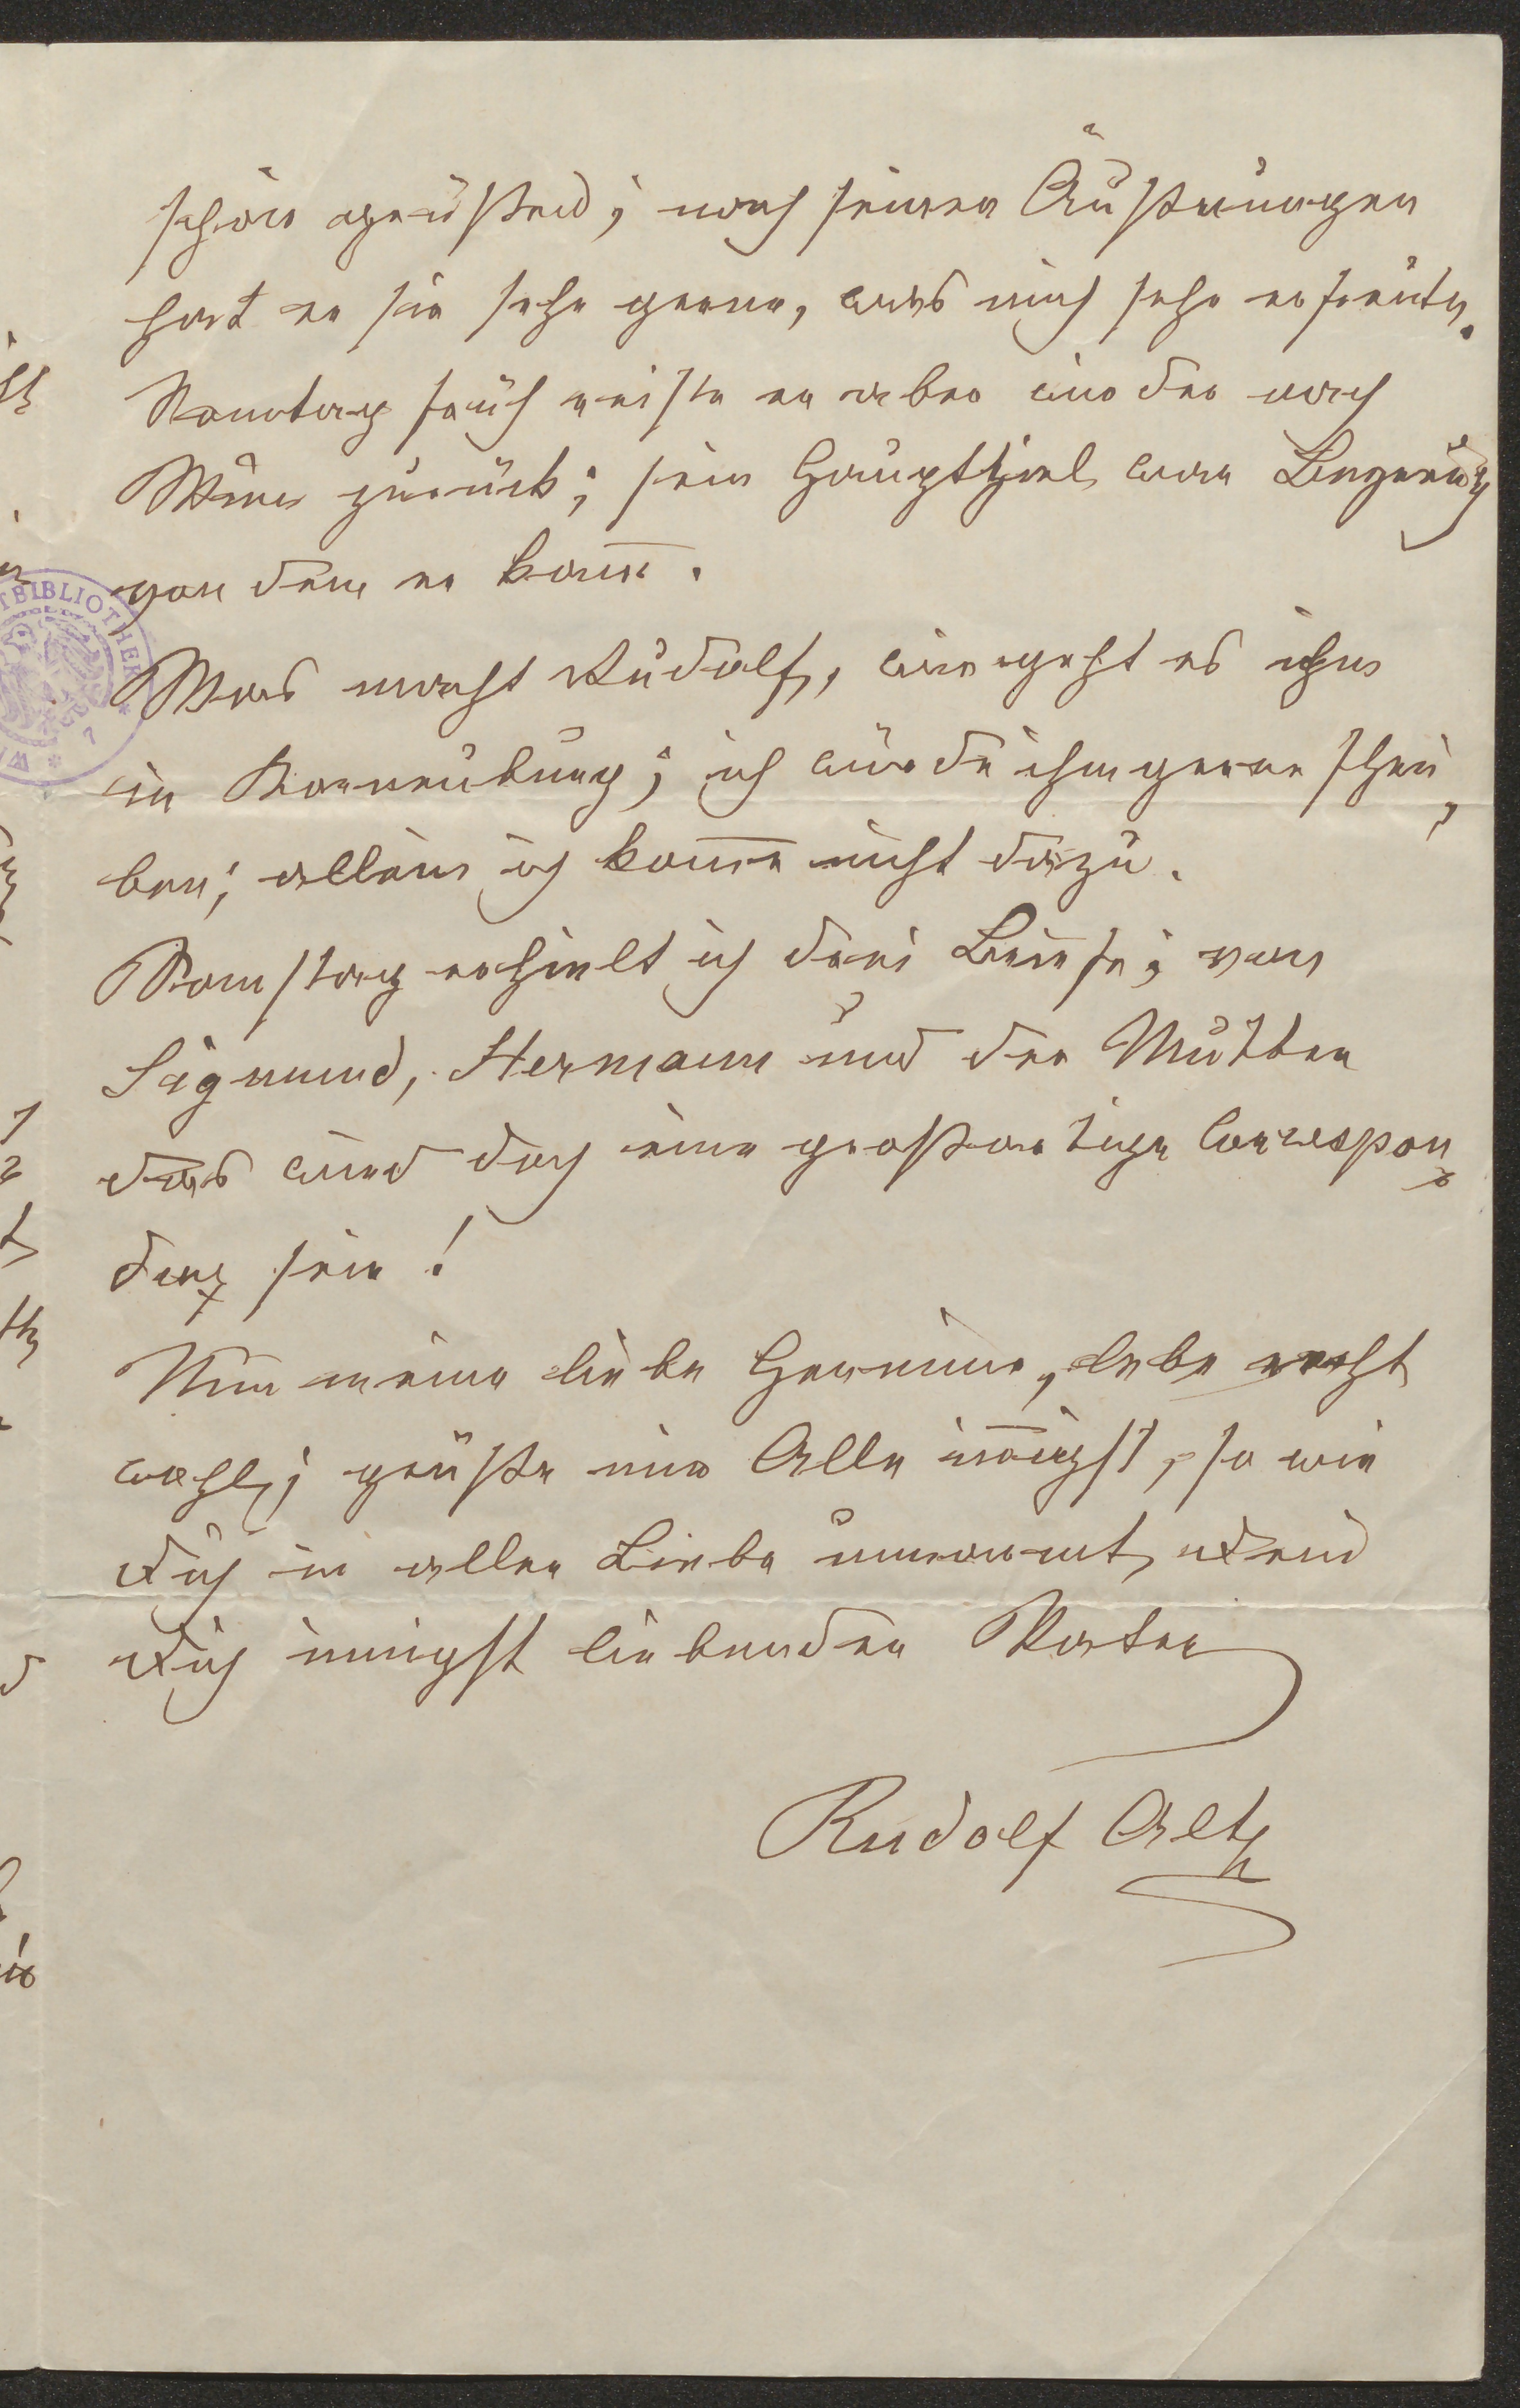 schön grüßend; nach seinen Äußerungen
hat er sie sehr gerne, was mich sehr erfreute.
Sonntag früh reiste er aber wieder nach
Wien zurück; sein Hauptziel war
von dem er kam̅.
Was macht Rudolf, wie geht es ihm
in Korneuburg; ich würde ihm gerne schrei,
ben; allein ich kom̅e nicht dazu.
Samstag erhielt ich drei Briefe; von
Sigmund, Hermann und der Mutter
das wird doch eine großartige Correspon
denz sein!
Nun meine liebe Hermine, lebe recht
wohl; grüße mir Alle in̅igst, so wie
Dich in aller Liebe umarmt Dein
Dich innigst liebender Vater
Rudolf Alt
BIBLIOTHEK